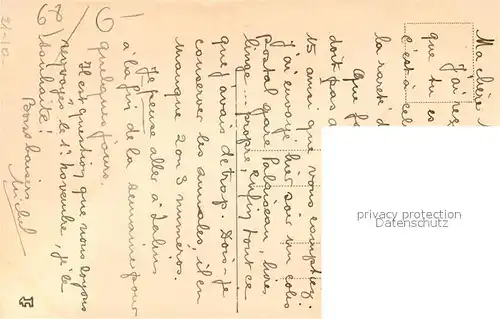 Ma chère
J'ai re
que tu es
c'est à cel
la rareté d
Que f
dont pas d
15 ainsi que vous comptiez.
J'ai envoyé hier soir un colis
postal gare Palaiseau, livres
linge... propre, enfin tout ce
que j'avais de trop. Dois-je
conserver les annales, il en
manque 2 ou 3 numéros.
Je pense aller à
à la fin de la semaine pour
quelques jours.
Il est question que nous soyons
renvoyés le 1er novembre, je le
souhaite!
Bons baisers
Michel
21-10
privacy protection
Datenschutz